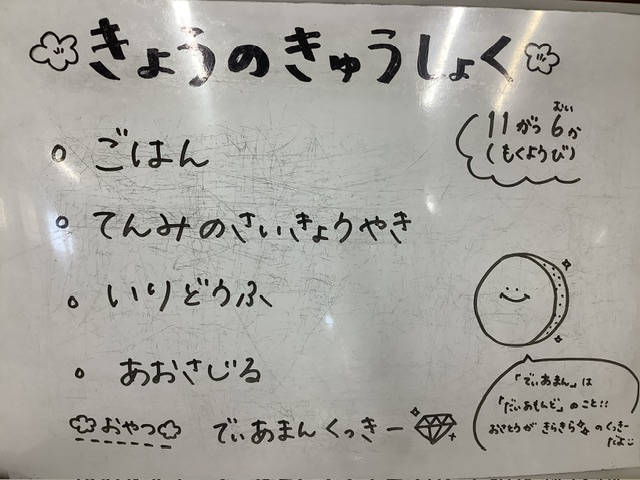 きょうのきゅうしょく
11がつ6か
むい
(もくようび)
ごはん
てんみのさいきょうやき
いりどうふ
あおさじる
おやつ
でぃあまんくっきー
「でぃあまん」は
「だいあもんど」のこと!!
おさとうがきらきらのくっきー
だよ